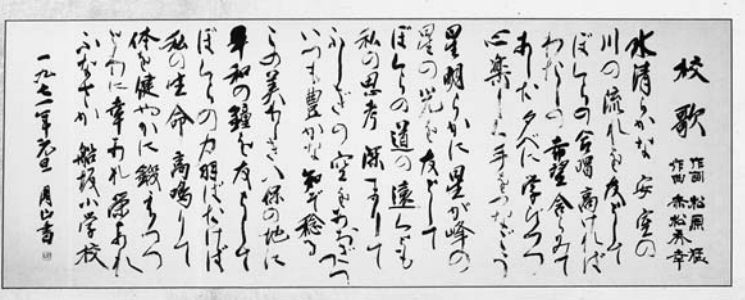 校歌
作詞 松原
作曲 赤松 幸
水清らかな 安室の
川の流れを友として
ぼくらの合唱高ければ
わたしの希望含らみて
あした夕べに学びつつ
心楽しく手をつなごう
星明らかに星が峰の
星の光を友として
ぼくらの道の遠くとも
私の思考 深まりて
ふしぎの空をあおぎつつ
いつも豊かな知ぞ稔る
この美わしき八保の地に
平和の鐘を友として
ぼくらの力羽ばたけば
私の生命 高鳴りて
体を健やかに鍛えつつ
とわに幸あれ栄あれ
ふなさか 船坂小学校
一九七一年元旦 月山書